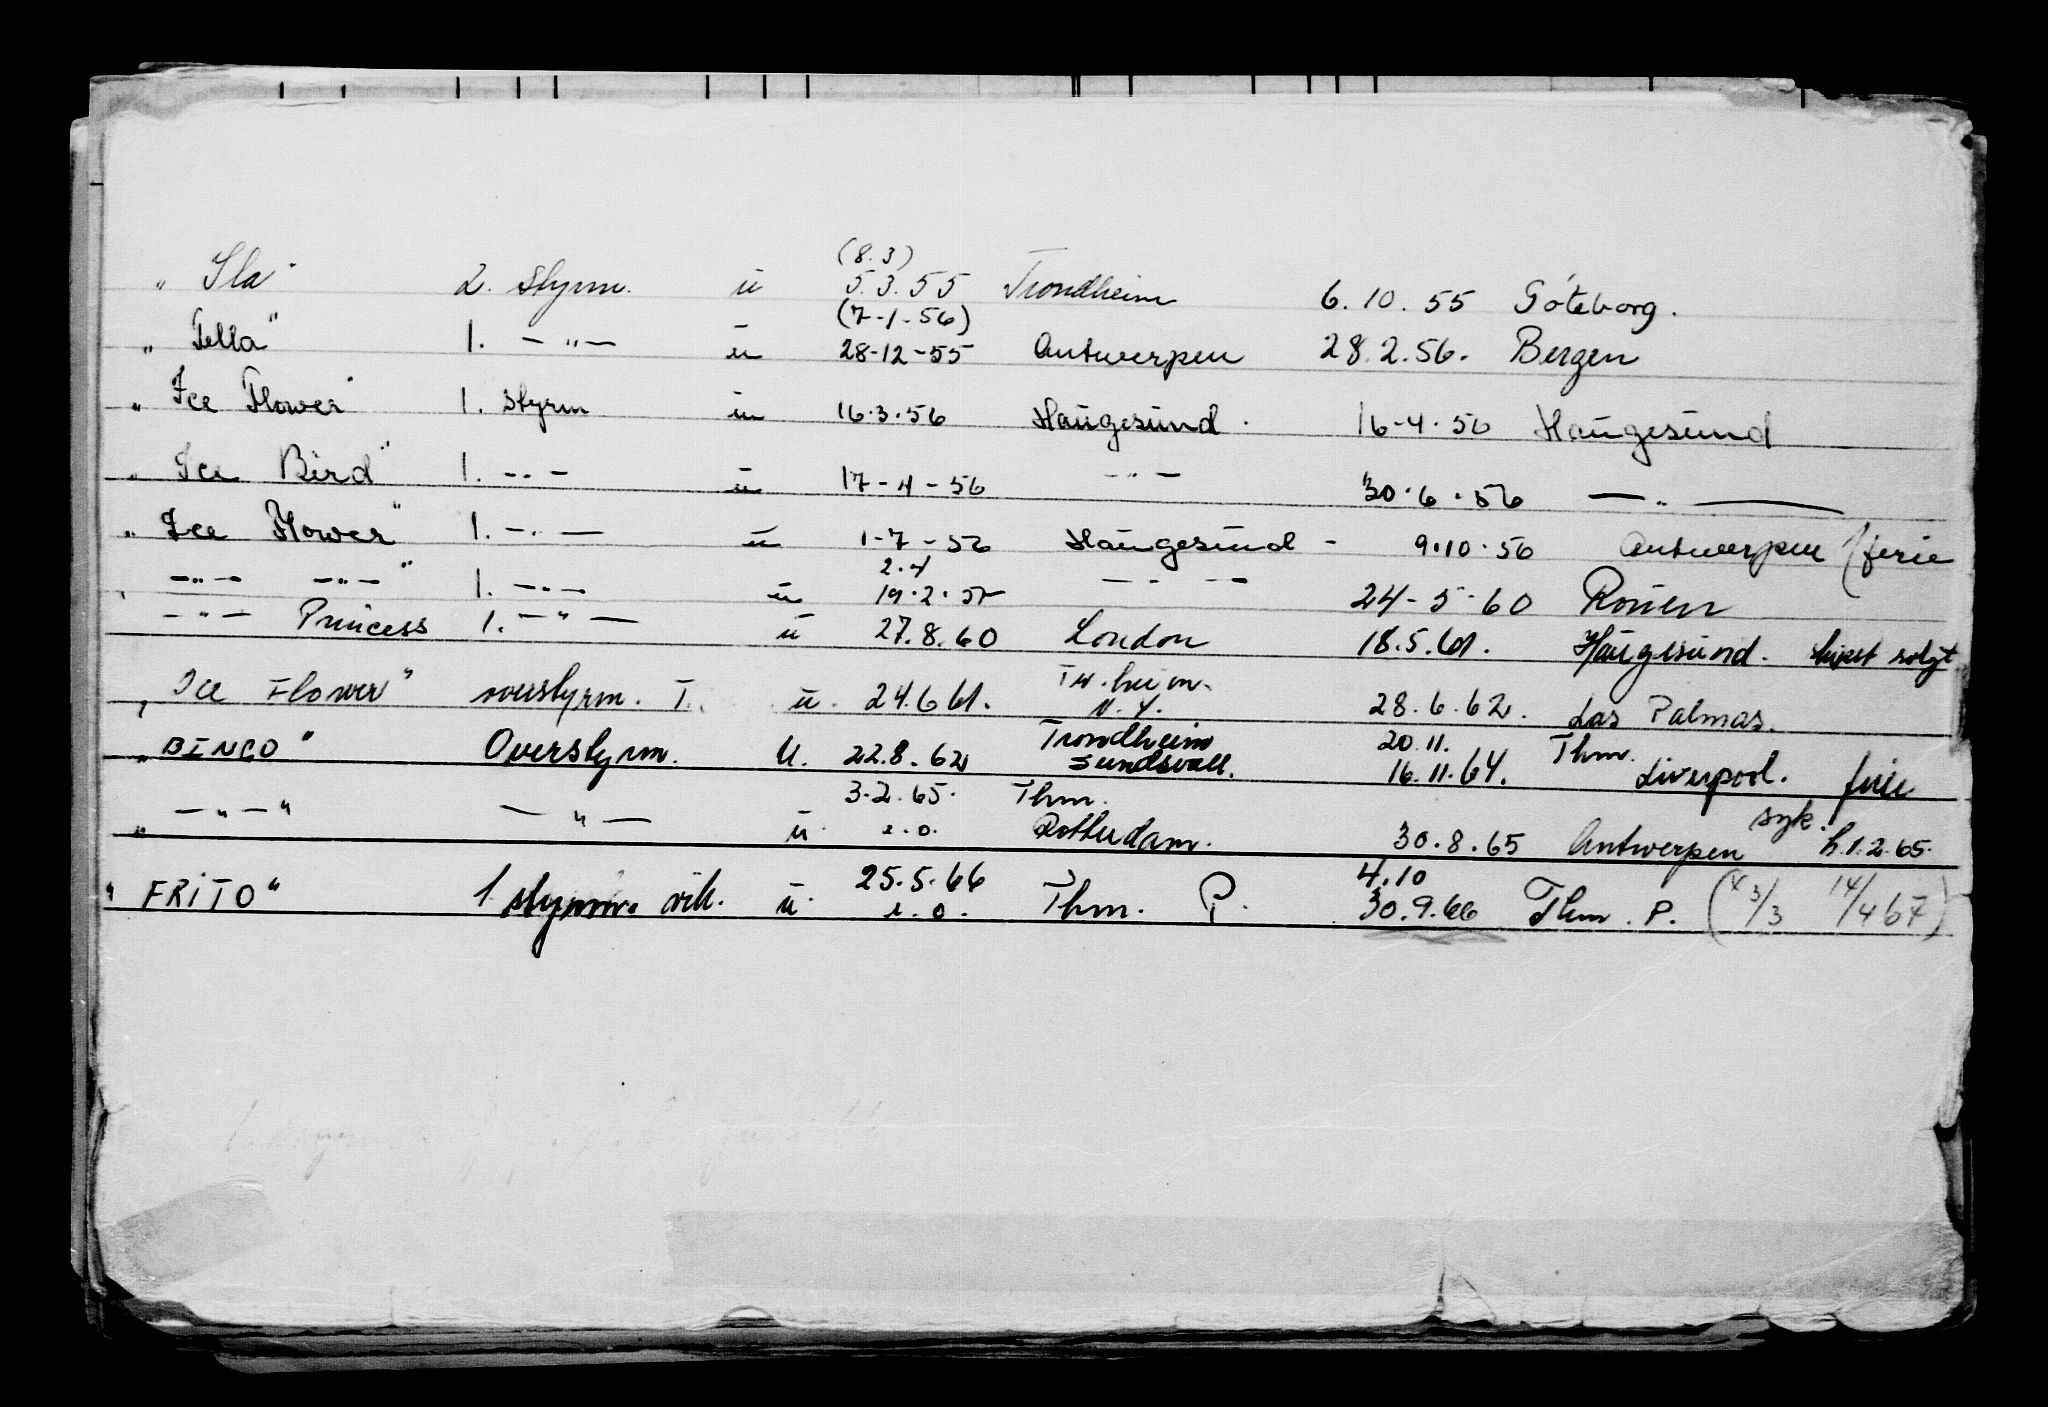 (8.3)
„ Sla" 2. styrm. u 5.3.55 Trondheim 6.10.55 Göteborg.
(7-1-56)
„ Tella" 1. -"- u 28-12-55 Antwerpen 28.2.56. Bergen
„ Ice Flower" 1. styrm u 16.3.56 Haugesund. 16-4.56 Haugesund
„ Ice Bird" 1. -"- u 17-4-56 -"- 30.6.56 -"-
„ Ice Flower" 1. -"- u 1-7-56 Haugesund - 9.10.56 Antwerpen (ferie
2.4
-"- -"-" 1. -"- u 19.2.57 -"- 24-5-60 Rouen
-"- Princess 1. -"- u 27.8.60 London 18.5.61. Haugesund. skipet solgt
Tr.heim.
„ Ice Flower" overstyrm. I. u. 24.6 61. N.Y. 28.6.62. Las Palmas.
Trondheim 20.11. Thm.
„ BINGO" Overstyrm. U. 22.8.62 Sundsvall. 16.11.64. Liverpool. ferie
3.2.65. Thm. syk.
„ -"-" -"- u. e.o. Rotterdam. 30.8.65 Antwerpen h.1.2.65.
25.5.66 4.10
" FRITO" 1 styrm. vik. u. e.o. Thm. P. 30.9.66 Thm. P. ( 3/3 14/4 67)